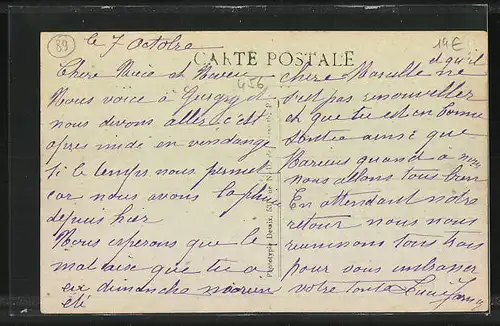 89
14€
le 7 octobre
CARTE POSTALE
456
Chere Niece et Neveu
Nous voici à Guigny et
nous devons aller cet
apres midi en vendange
si le temps nous permet
car nous avons la pluie
depuis hier
Nous esperons que le
malaise que tu a
eu dimanche
été
et qu'il
chere Marcelle ne
s'est pas renouveller
et que tu est en bonne
santée ainsi que
Marius quand à nou
nous allons tous bien
En attendant notre
retour nous nous
reunissons tous trois
pour vous embrasser
votre tante Lucie
Phototypie Desaix